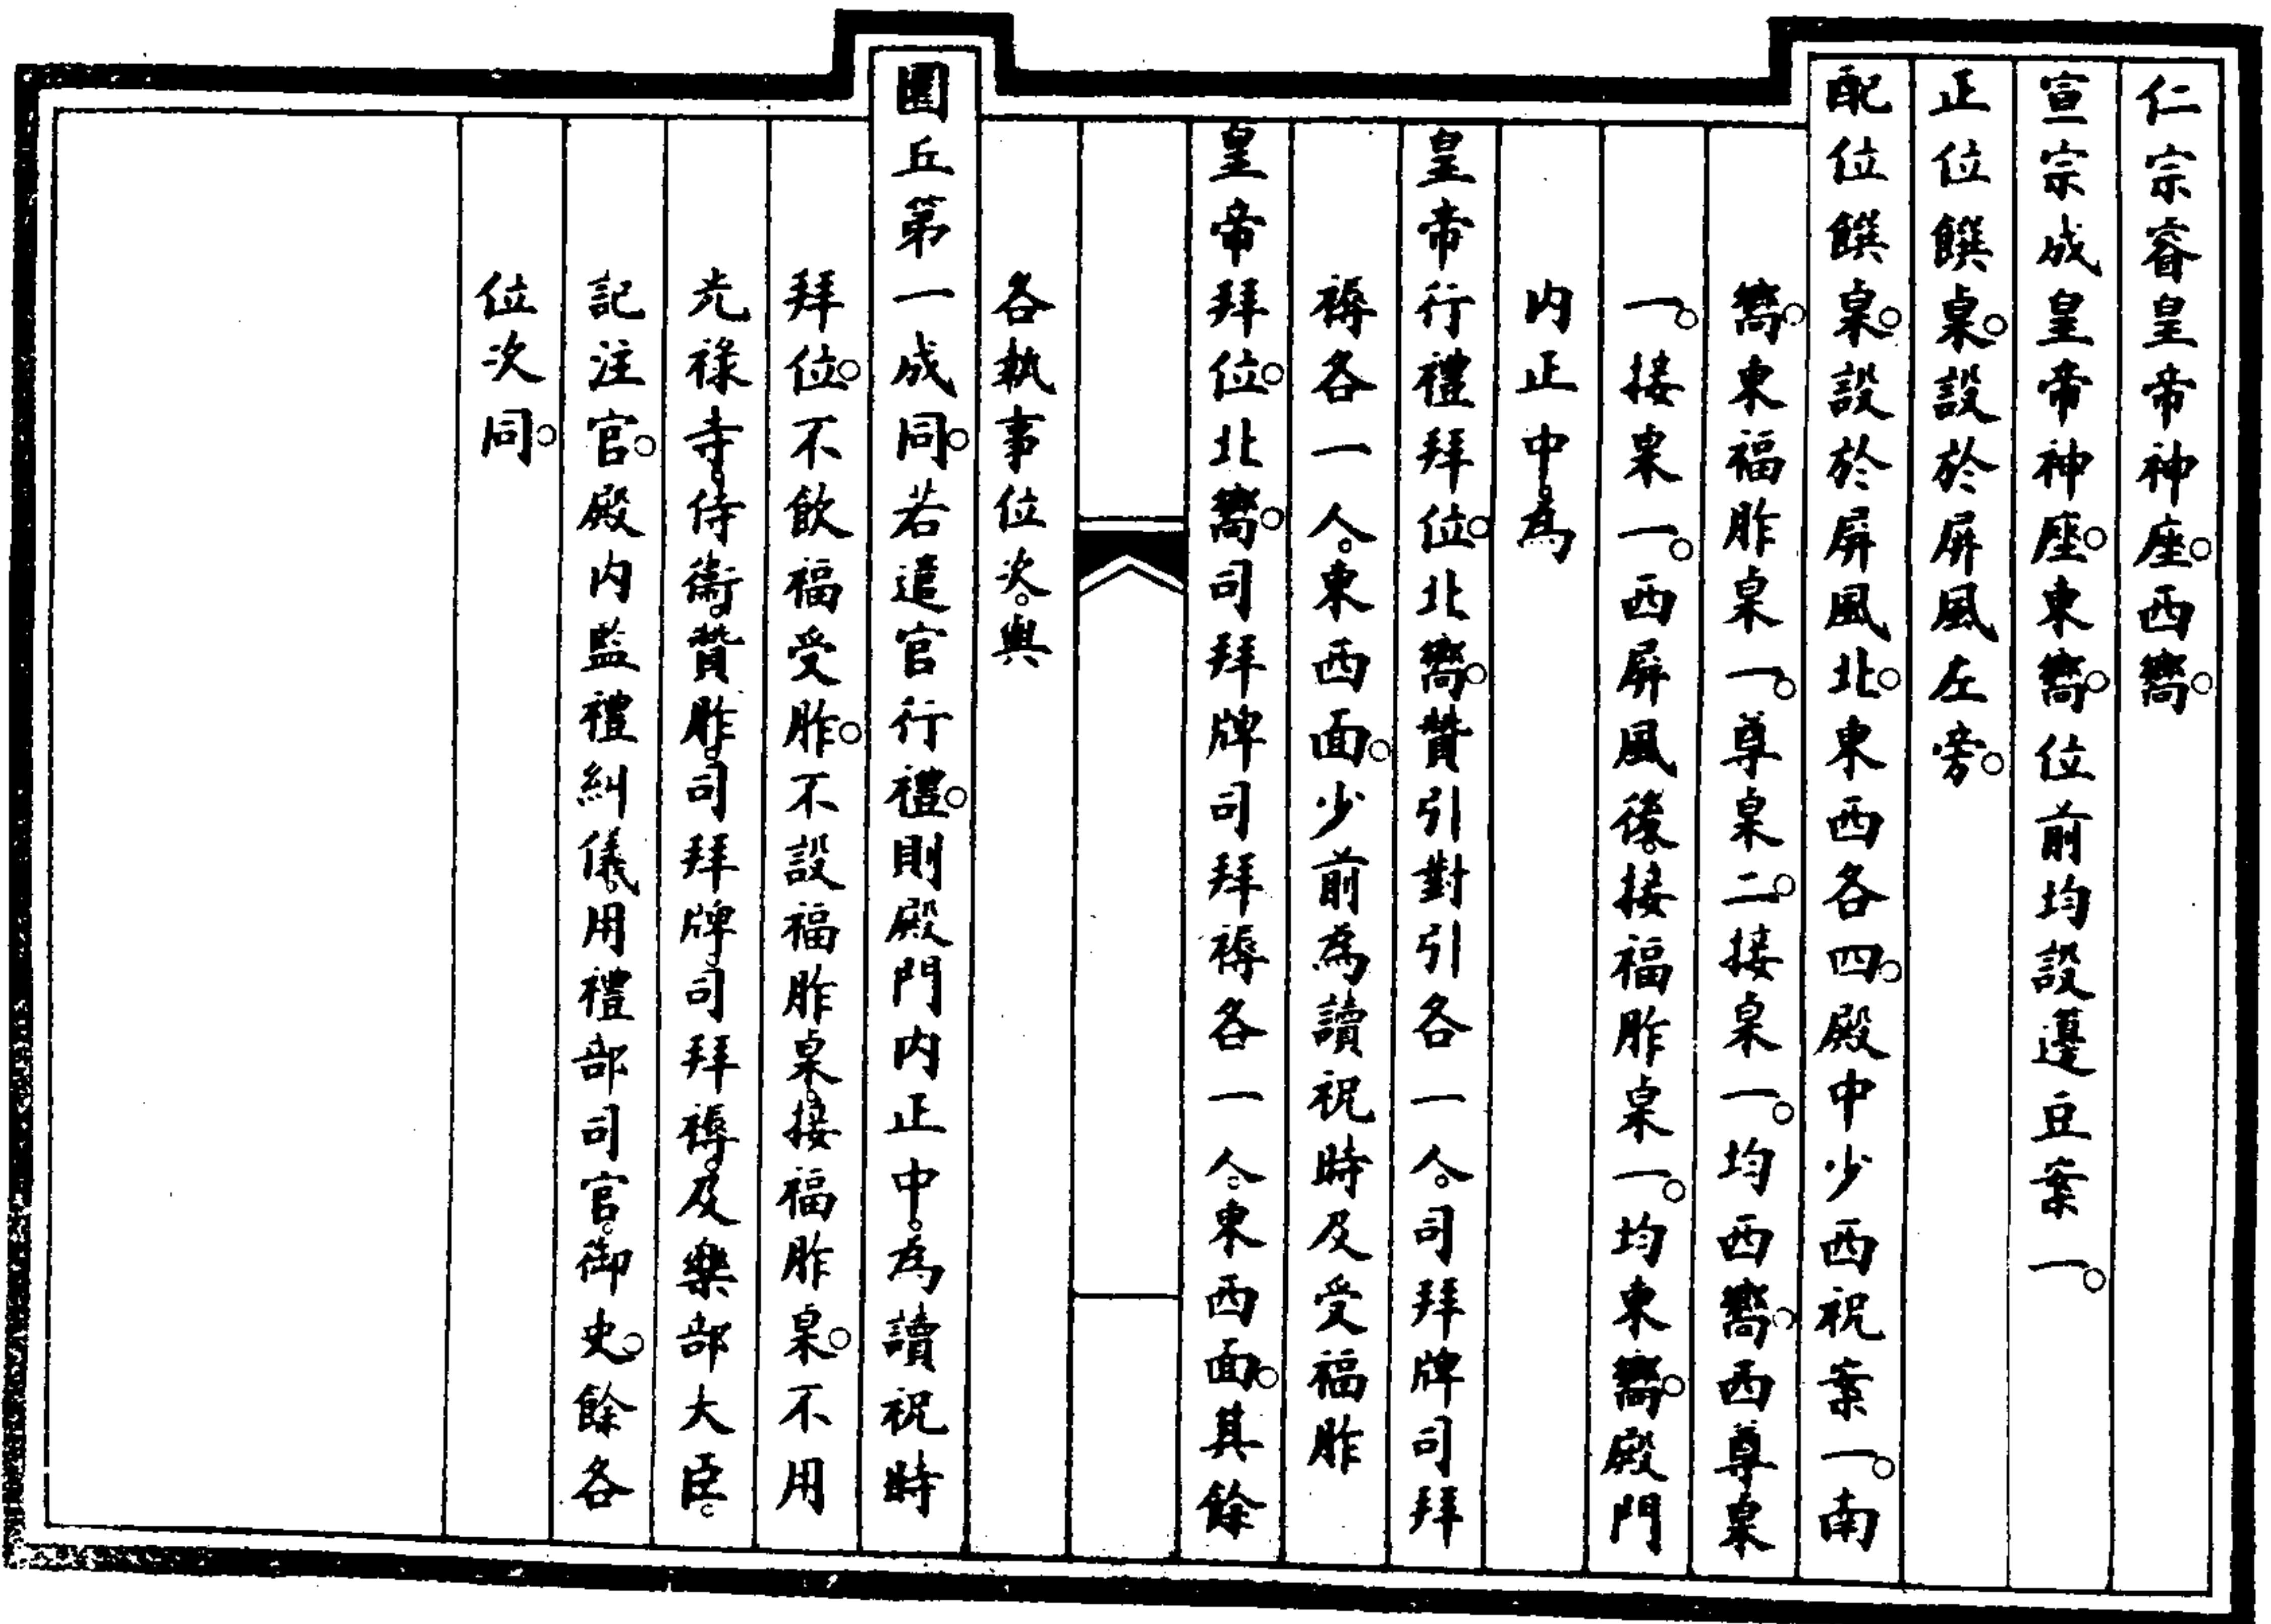 仁宗睿皇帝神座。西嚮。
宣宗成皇帝神座。東嚮。位前均設籩豆案一。
正位饌桌。設於屏風左旁。
配位饌桌。設於屏風北。東西各四。殿中少西祝案一。南
嚮。東福胙桌一。尊桌二。接桌一。均西嚮。西尊桌
一。接桌一。西屏風後。接福胙桌一。均東嚮。殿門
內正中。為
皇帝行禮拜位。北嚮。贊引對引各一人。司拜牌司拜
褥各一人。東西面。少前為讀祝時及受福胙
皇帝拜位。北嚮。司拜牌司拜褥各一人。東西面。其餘
各執事位次。與
圜丘第一成同。若遣官行禮。則殿門內正中。為讀祝時
拜位。不飲福受胙。不設福胙桌。接福胙桌。不用
光祿寺。侍衞。贊胙。司拜牌。司拜褥。及樂部大臣。
記注官。殿內監禮糾儀。用禮部司官。御史。餘各
位次同。